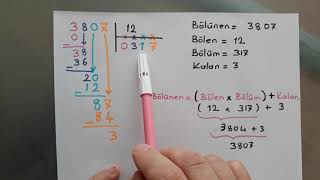 3807 12
0 0317
38
36
20
12
87
84
3
Bölünen = 3807
Bölen = 12
Bölüm = 317
Kalan = 3
Bölünen = (Bölen x Bölüm) + Kalan
(12 x 317) + 3
3804 + 3
3807